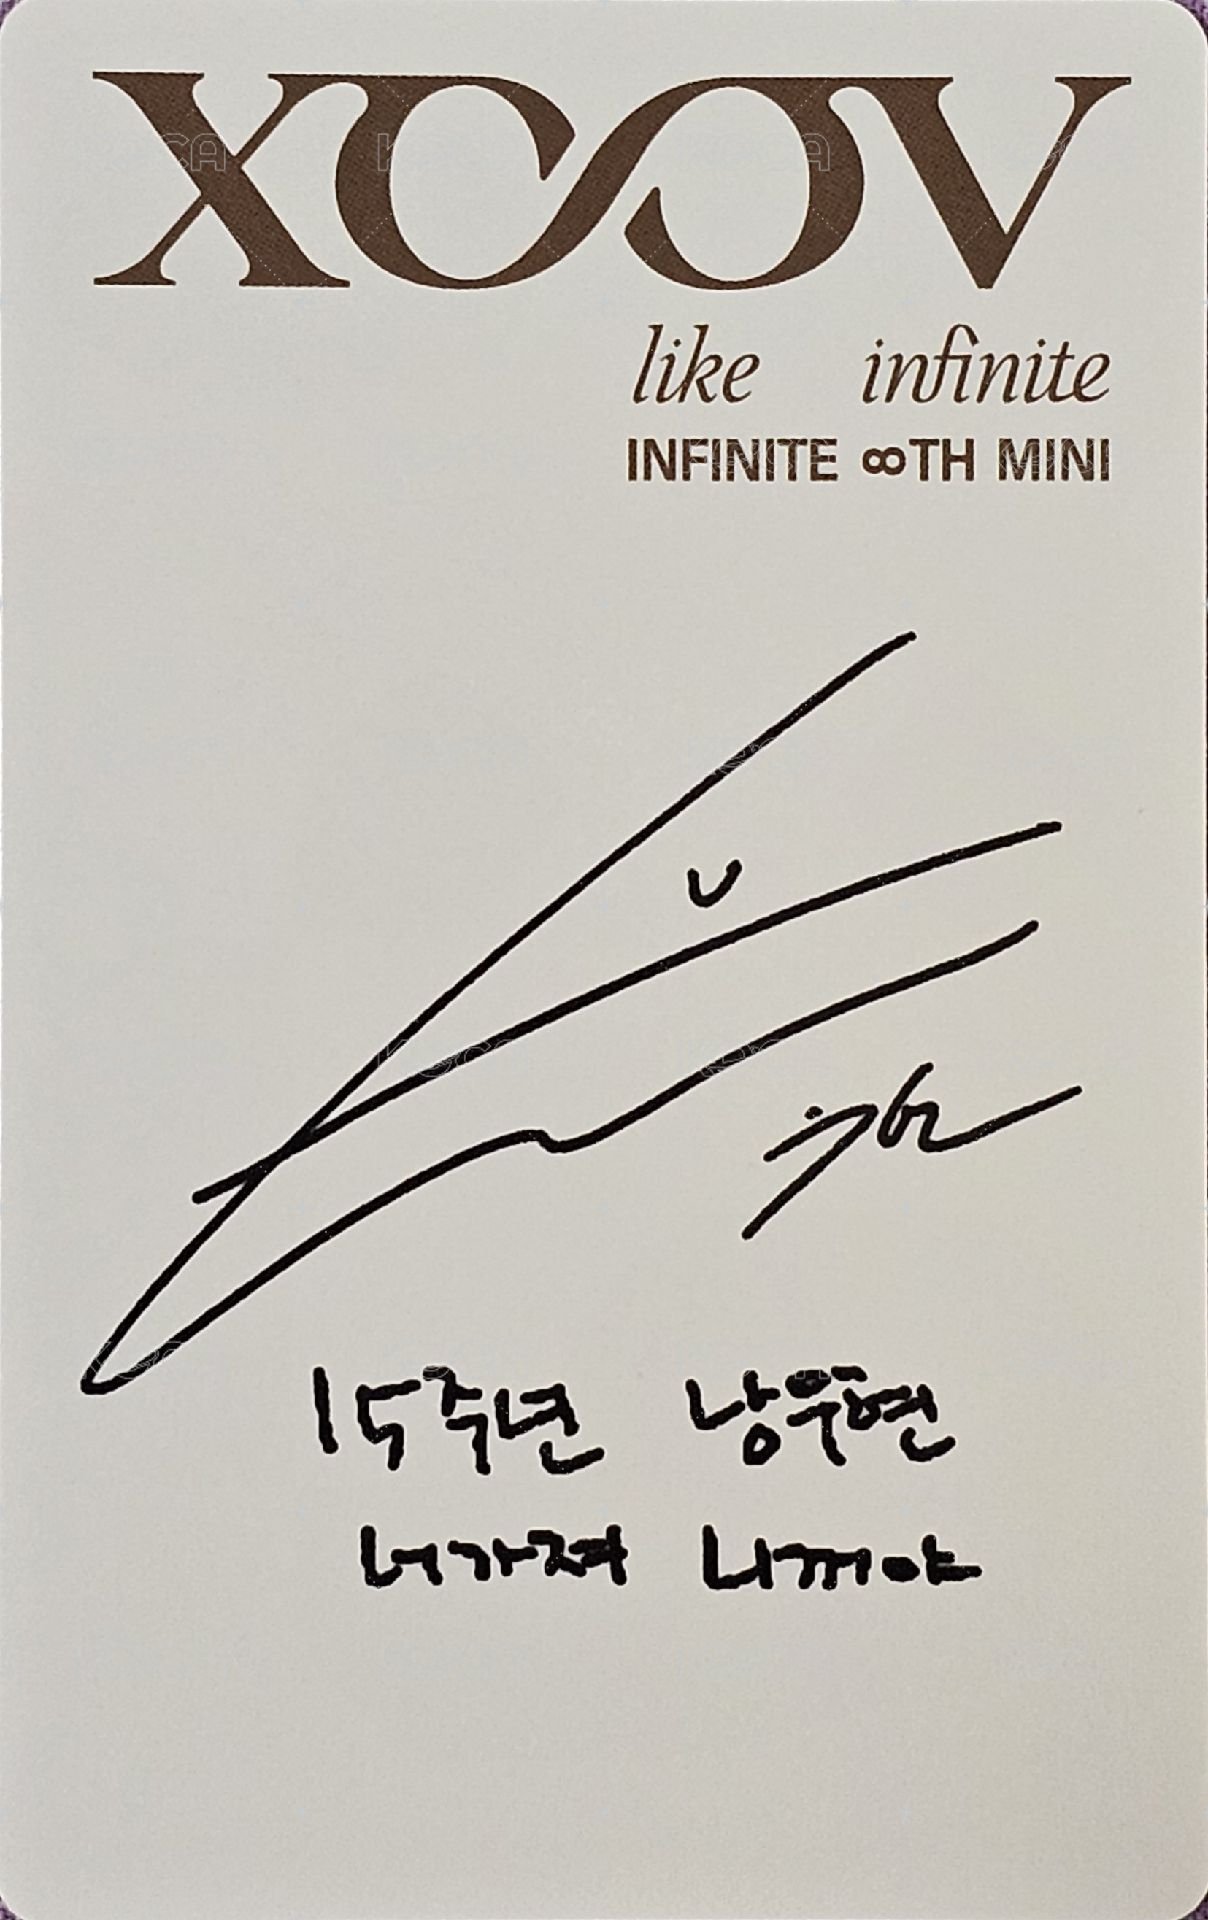 XOOV
like infinite
INFINITE ∞TH MINI
15주년 낭우현
너가져 니꺼야